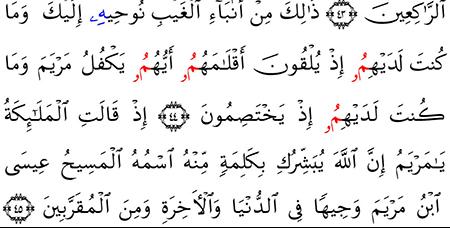 ٱلرَّٰكِعِينَ ۝٤٣ ذَٰلِكَ مِنْ أَنۢبَآءِ ٱلْغَيْبِ نُوحِيهِۦ إِلَيْكَ وَمَا
كُنتَ لَدَيْهِمُۥ إِذْ يُلْقُونَ أَقْلَٰمَهُمُۥ أَيُّهُمُۥ يَكْفُلُ مَرْيَمَ وَمَا
كُنتَ لَدَيْهِمُۥ إِذْ يَخْتَصِمُونَ ۝٤٤ إِذْ قَالَتِ ٱلْمَلَٰٓئِكَةُ
يَٰمَرْيَمُ إِنَّ ٱللَّهَ يُبَشِّرُكِ بِكَلِمَةٍ مِّنْهُ ٱسْمُهُ ٱلْمَسِيحُ عِيسَى
ٱبْنُ مَرْيَمَ وَجِيهًا فِى ٱلدُّنْيَا وَٱلْأَخِرَةِ وَمِنَ ٱلْمُقَرَّبِينَ ۝٤٥